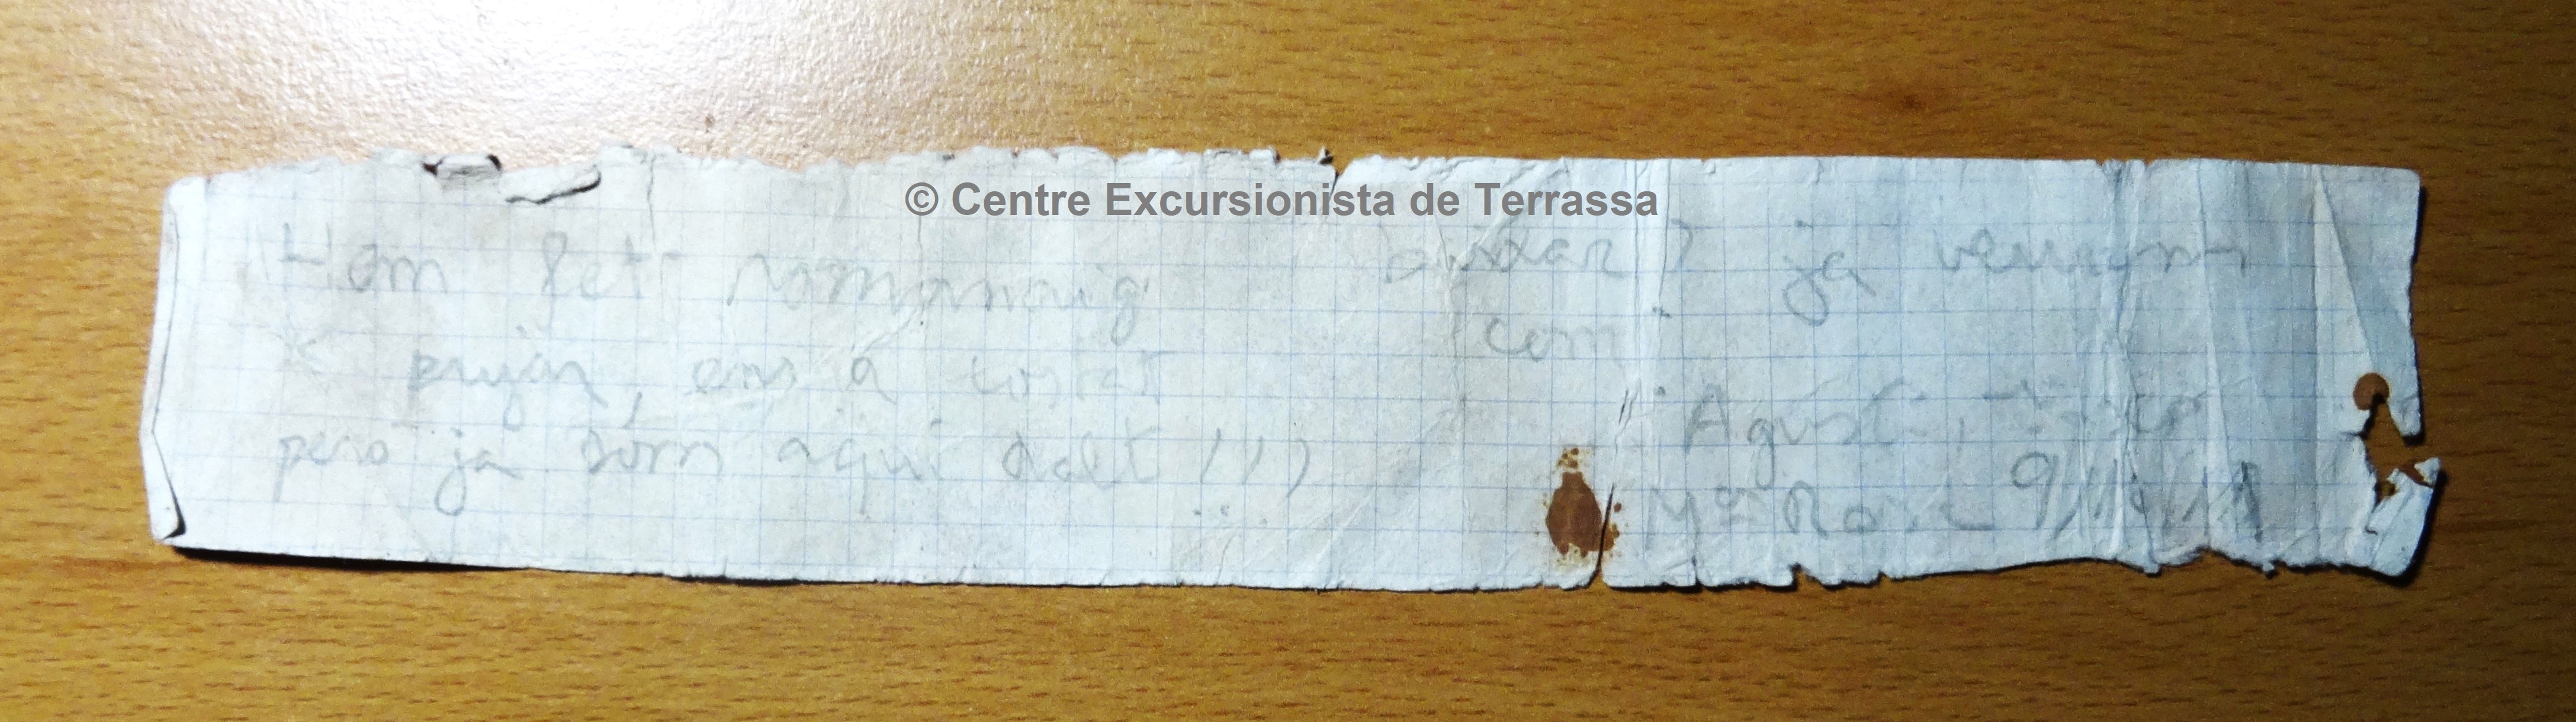 © Centre Excursionista de Terrassa
Hem fet romanaig
x pujar, ens a costat
pero ja som aqui dalt!!!
baixar? ja veurem
com
Agustí,
Mª Rosa 9/